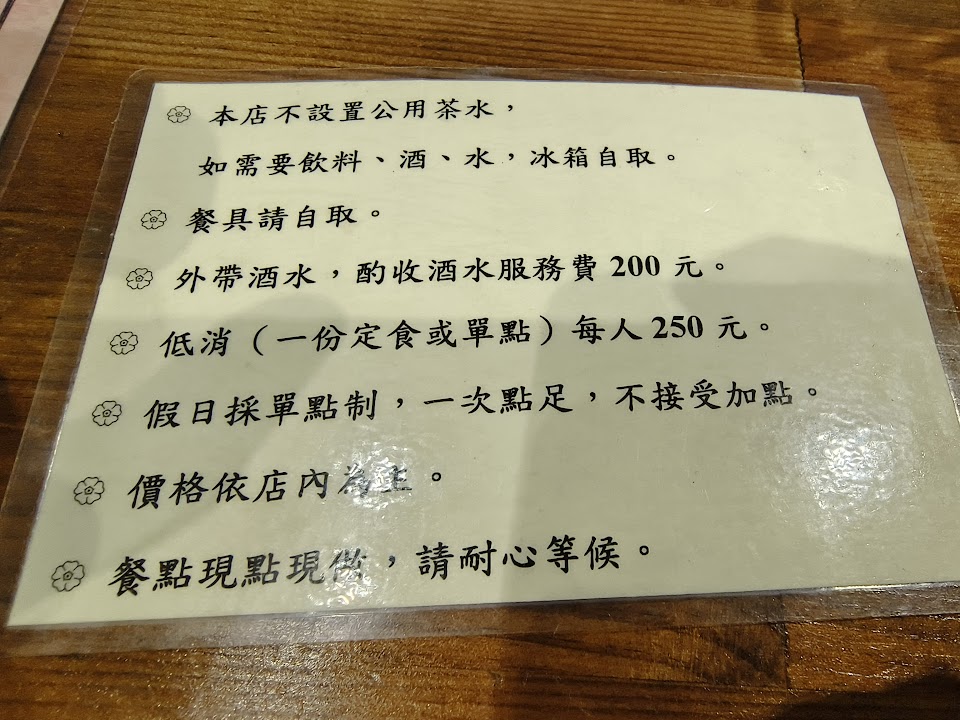 本店不設置公用茶水，
如需要飲料、酒、水，冰箱自取。
餐具請自取。
外帶酒水，酌收酒水服務費 200 元。
低消（一份定食或單點）每人 250 元。
假日採單點制，一次點足，不接受加點。
價格依店內為主。
餐點現點現做，請耐心等候。